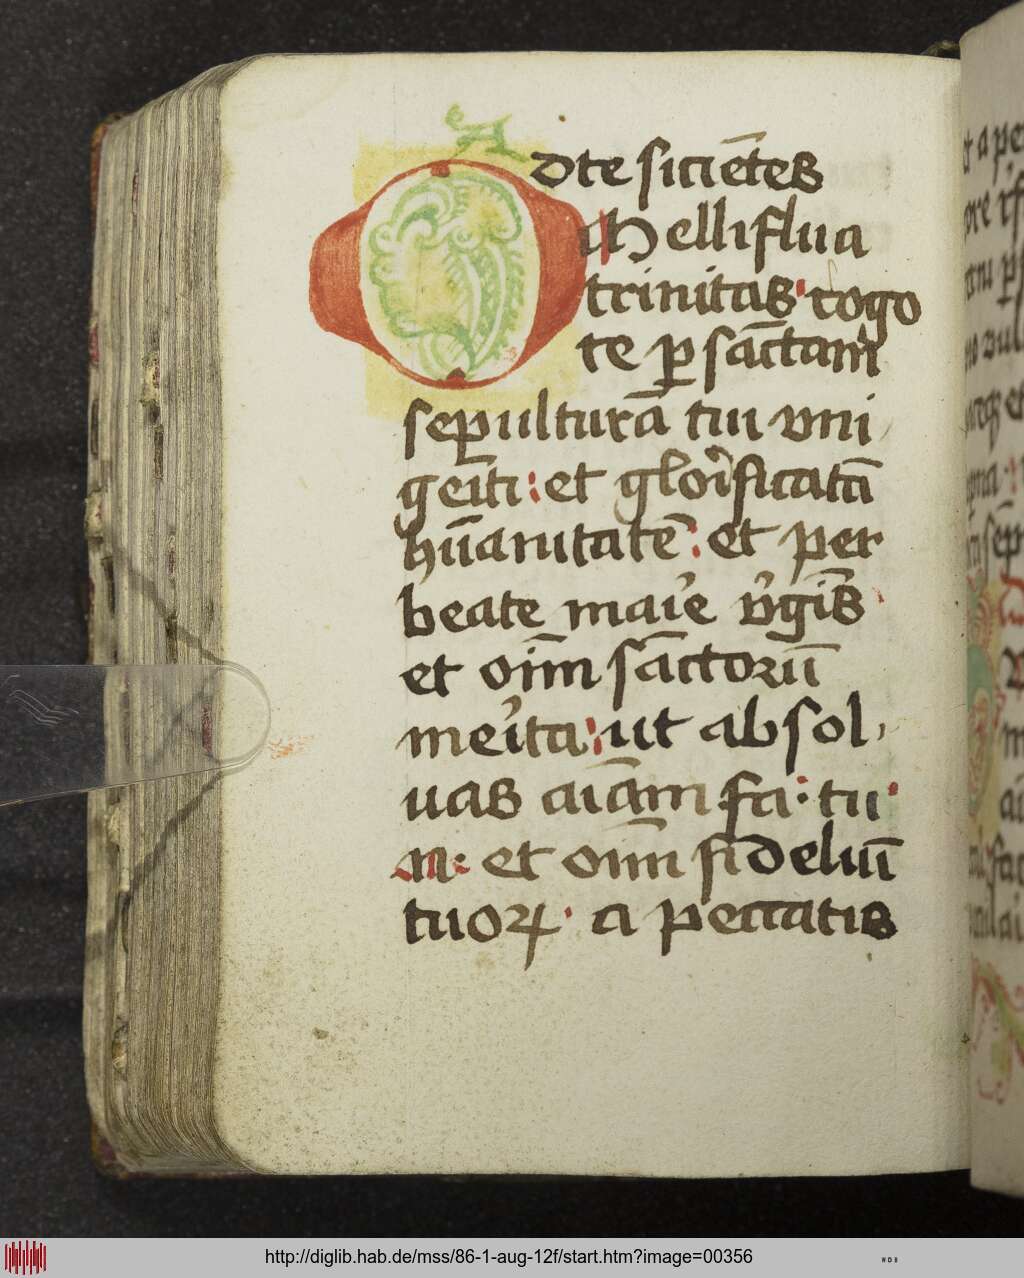 O Adte sicie͞tes
Melliflua
trinitas rogo
te ꝑ sa͞ctam
sepultura͞ tui vni
ge͞iti : et glo͛ificata͞
hu͞anitate͞ : et per
beate mai͛e v͛gi͞s
et oi͞m sa͞ctoru͞
mei͛ta : ut absol
uas ai͞am fa · tu
n : et oi͞m fideliu͞
tuoꝝ · a peccatis
http://diglib.hab.de/mss/86-1-aug-12f/start.htm?image=00356